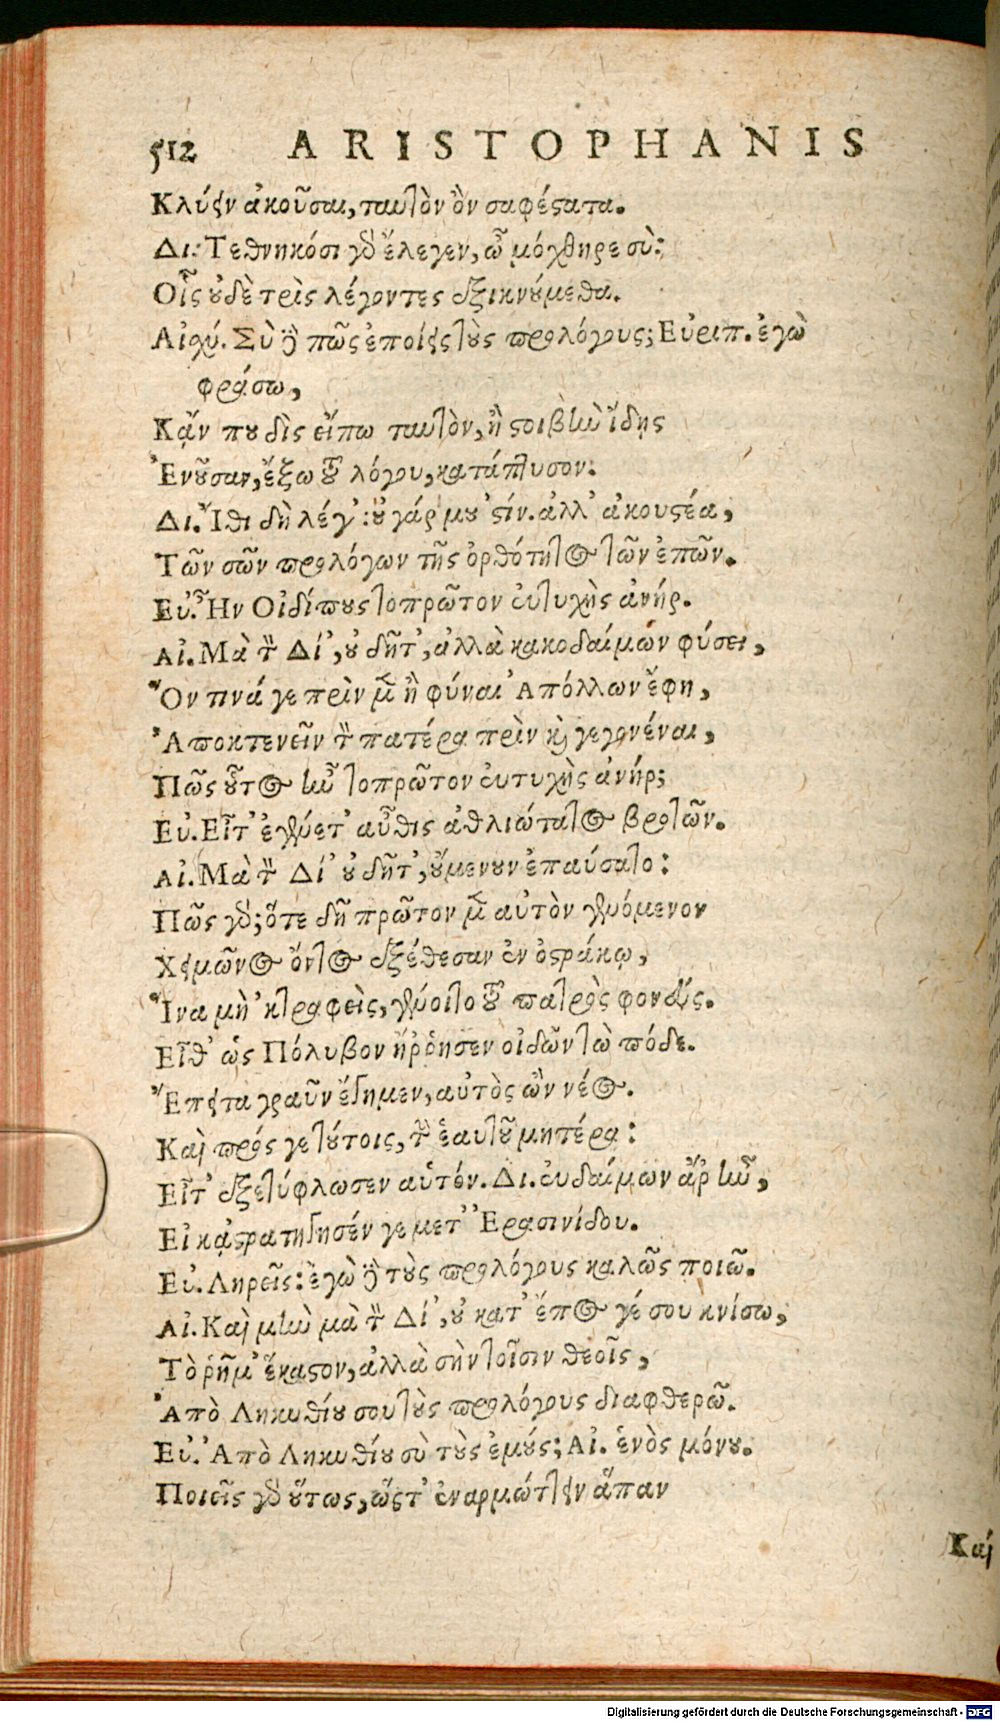 512 ARISTOPHANIS
Κλύειν ἀκοῦσαι, ταυτὸν ὂν σαφέστατα.
Δι: Τεθνηκόσι γὰρ ἔλεγεν, ὦ μόχθηρε σὺ:
Οἷς οὐδὲ τρὶς λέγοντες ἐξικνούμεθα.
Αἰσχύ. Σὺ δὲ πῶς ἐποίεις τοὺς προλόγους; Εὐριπ. ἐγὼ
φράσω,
Κᾄν που δὶς εἴπω ταυτὸν, ἢ στοιβὴν ἴδης
Ἐνοῦσαν, ἔξω τοῦ λόγου, κατάπτυσον.
Δι. Ἴθι δὴ λέγ': οὐ γάρ μου 'στίν. ἀλλ' ἀκουστέα,
Τῶν σῶν προλόγων τῆς ὀρθότητος τῶν ἐπῶν.
Εὐ. Ἦν Οἰδίπους τοπρῶτον εὐτυχὴς ἀνήρ.
Αἰ. Μὰ τὸν Δί', οὐ δῆτ', ἀλλὰ κακοδαίμων φύσει,
Ὅν τινά γε πρὶν μὲν ἢ φύναι Ἀπόλλων ἔφη,
Ἀποκτενεῖν τὸν πατέρα πρὶν καὶ γεγονέναι,
Πῶς οὗτος ἦν τοπρῶτον εὐτυχὴς ἀνήρ;
Εὐ. Εἶτ' ἐγένετ' αὖθις ἀθλιώτατος βροτῶν.
Αἰ. Μὰ τὸν Δί' οὐ δῆτ', οὔμενουν ἐπαύσατο:
Πῶς γὰρ; ὅτε δὴ πρῶτον μὲν αὐτὸν γενόμενον
Χειμῶνος ὄντος ἐξέθεσαν ἐν ὀστράκῳ,
Ἵνα μὴ 'κτραφεὶς, γένοιτο τοῦ πατρὸς φονεύς.
Εἶθ' ὡς Πόλυβον ἤῤῥησεν οἰδῶν τὼ πόδε.
Ἔπειτα γραῦν ἔγημεν, αὐτὸς ὢν νέος.
Καὶ πρός γε τούτοις, τὴν ἑαυτοῦ μητέρα:
Εἶτ' ἐξετύφλωσεν αὑτόν. Δι. εὐδαίμων ἄρ' ἦν,
Εἰ κᾀστρατήγησέν γε μετ' Ἐρασινίδου.
Εὐ. Ληρεῖς: ἐγὼ δὲ τοὺς προλόγους καλῶς ποιῶ.
Αἰ. Καὶ μὴν μὰ τὸν Δί', οὐ κατ' ἔπος γέ σου κνίσω,
Τὸ ῥῆμ' ἕκαστον, ἀλλὰ σὴν τοῖσιν θεοῖς,
Ἀπὸ Ληκυθίου σου τοὺς προλόγους διαφθερῶ.
Εὐ. Ἀπὸ Ληκυθίου σὺ τοὺς ἐμούς; Αἰ. ἑνὸς μόνου.
Ποιεῖς γὰρ οὕτως, ὥστ' ἐναρμώττειν ἅπαν
Καὶ
Digitalisierung gefördert durch die Deutsche Forschungsgemeinschaft - DFG